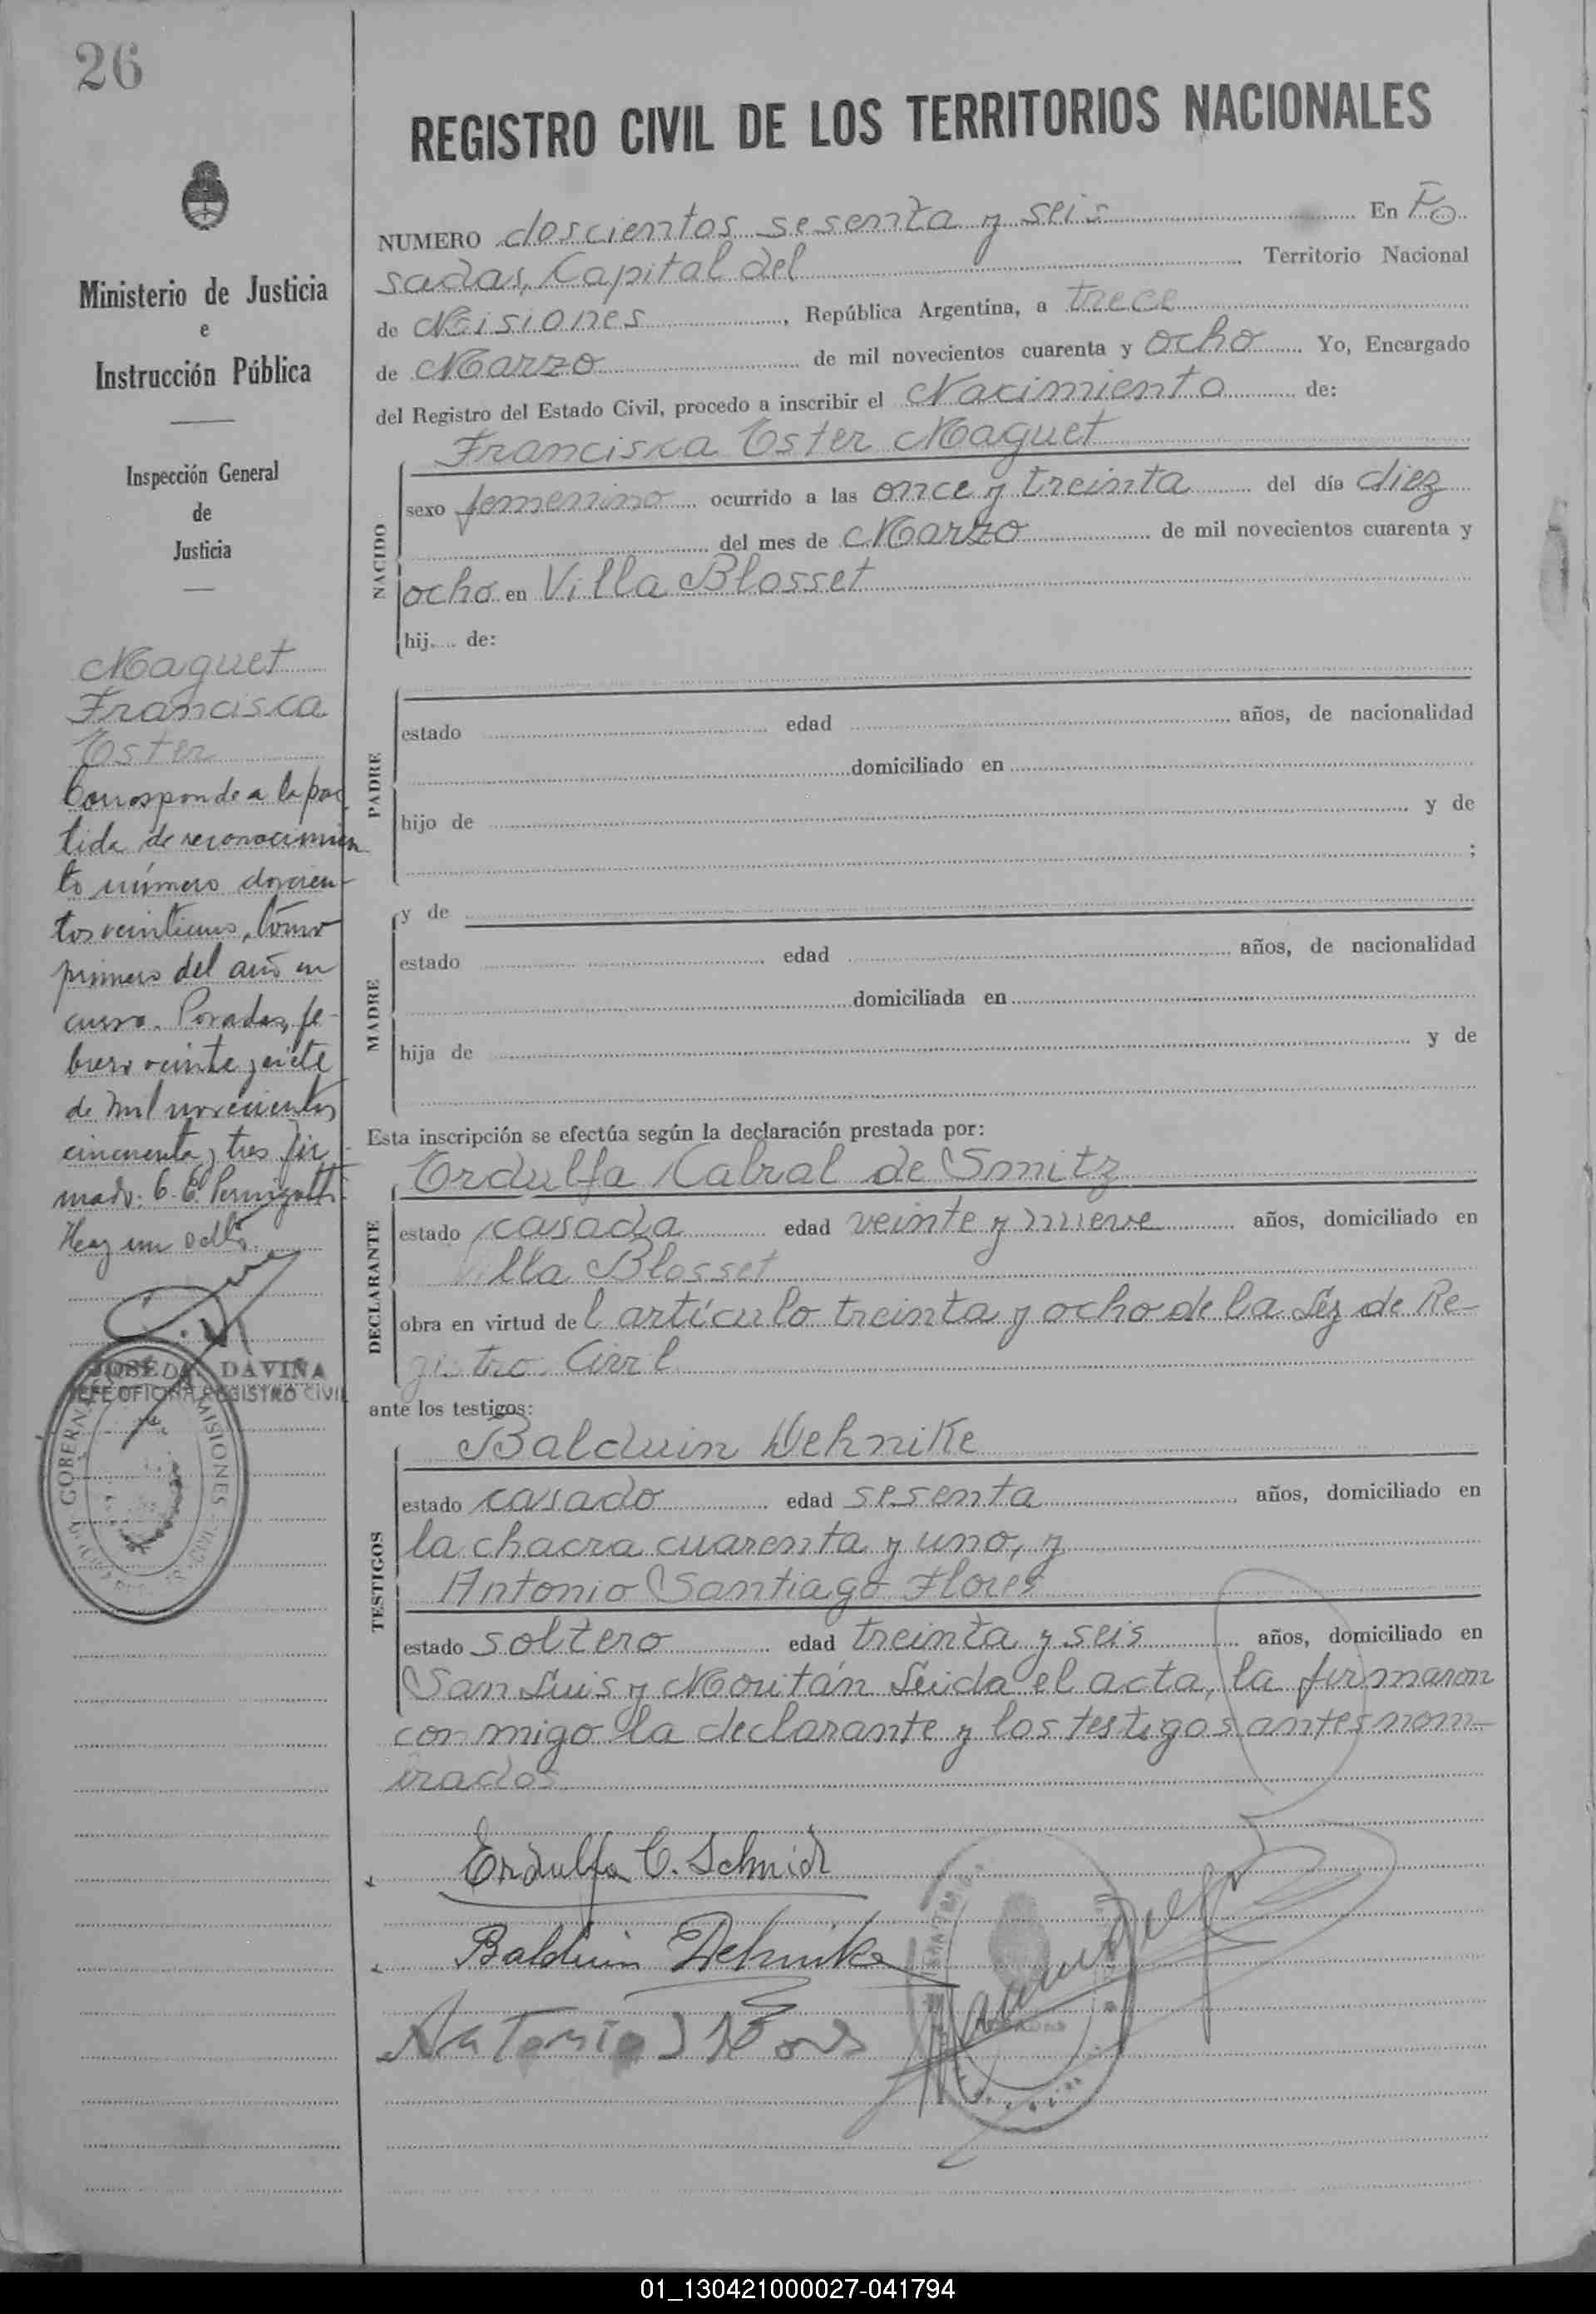 26
REGISTRO CIVIL DE LOS TERRITORIOS NACIONALES
Ministerio de Justicia
e
Instrucción Pública
Inspección General
de
Justicia
Maguet
Francisca
Ester
Corresponde a la par
tida de reconocimien
to número doscien-
tos veintiuno, tomo
primero del año en
curso. Posadas, fe-
brero veinte y siete
de mil novecientos
cincuenta y tres fir
mado: C. E. Pernigotti
Hay un sello
JOSÉ D. DAVIÑA
JEFE OFICINA REGISTRO CIVIL
GOBERNA MISIONES
NUMERO doscientos sesenta y seis En Po
sadas, Capital del Territorio Nacional
de Misiones, República Argentina, a trece
de Marzo de mil novecientos cuarenta y ocho Yo, Encargado
del Registro del Estado Civil, procedo a inscribir el Nacimiento de:
Francisca Ester Maguet
NACIDO
sexo femenino ocurrido a las once y treinta del día diez
del mes de Marzo de mil novecientos cuarenta y
ocho en Villa Blosset
hij... de:
PADRE
estado edad años, de nacionalidad
domiciliado en
hijo de y de
;
MADRE
y de
estado edad años, de nacionalidad
domiciliada en
hija de y de
Esta inscripción se efectúa según la declaración prestada por:
Erdulfa Cabral de Smitz
DECLARANTE
estado casada edad veinte y nueve años, domiciliado en
Villa Blosset
obra en virtud del artículo treinta y ocho de la Ley de Re-
gistro Civil
ante los testigos:
Balduin Dehnike
TESTIGOS
estado casado edad sesenta años, domiciliado en
la chacra cuarenta y uno, y
Antonio Santiago Flores
estado soltero edad treinta y seis años, domiciliado en
San Luis y Moritán Leida el acta, la firmaron
conmigo la declarante y los testigos antes nom-
brados
Erdulfa C. Schmidt
Balduin Dehnike
Antonio
01_130421000027-041794